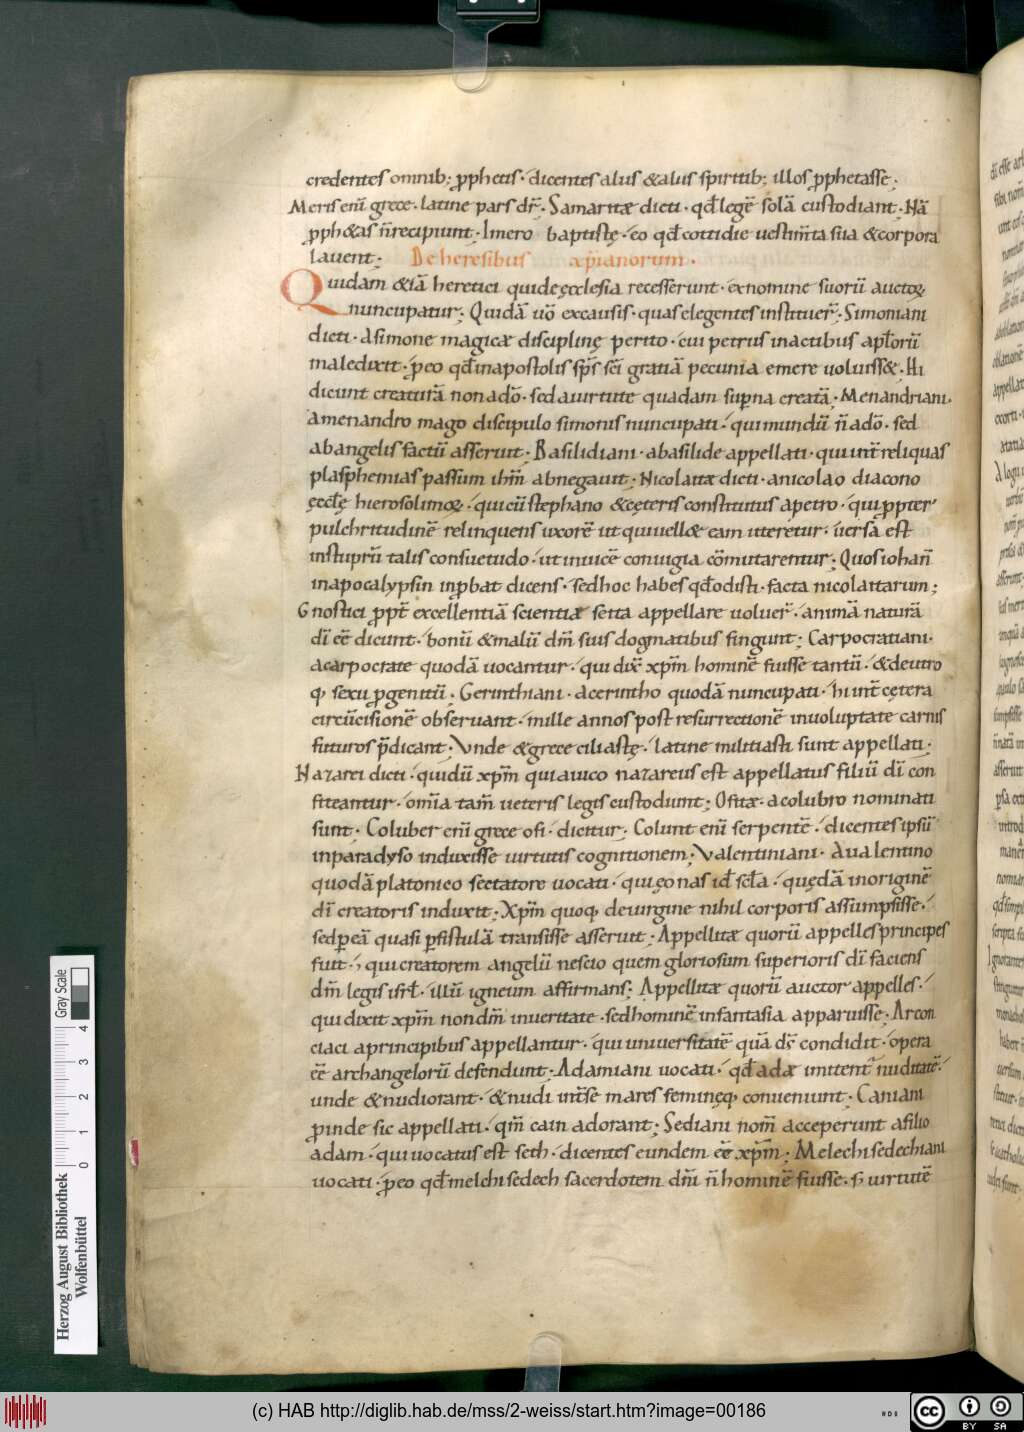 credentes omnib; ꝓphetis · dicentes aliis & aliis spiritib; illos ꝓphetasse;
Meris enī grece · latine pars dr̄ · Samaritæ dicti · qđ legē solā custodiant · Nā
ꝓph&as n̄ recipiunt · Imero baptistę · eo qđ cottidie uestim̄ta sua & corpora
lauent; De heresibus xp̄ianorum ·
Quidam &iā heretici qui de ęcclesia recesserunt · ex nomine suorū auctoꝝ
nuncupatur; Quidā uō ex causis · quas elegentes instituer̄ · Simoniani
dicti · A simone magicæ disciplinę perito · cui petrus in actibus apl̄orū
maledixit · ꝓ eo qđ in apostolis sp̄s sc̄i gratiā pecunia emere uoluiss& · Hi
dicunt creaturā non a dō · sed a uirtute quadam suꝑna creatā · Menandriani ·
a menandro mago discipulo simonis nuncupati · qui mundū n̄ a dō · sed
ab angelis factū asserunt · Basilidiani · a basilide appellati · qui int̄ reliquas
plasphemias passum ih̄m abnegauit · Nicolaitæ dicti · a nicolao diacono
ęccl̄ę hierosolimoꝝ · qui cū stephano & cęteris constitutus a petro · qui ꝓpter
pulchritudinē relinquens uxorē ut qui uell& eam uteretur · uersa est
in stuprū talis consuetudo · ut inuicē coniugia cōmutarentur; Quos iohan̄
in apocalypsin inꝓbat dicens · sed hoc habes qđ odisti · facta nicolaitarum;
Gnostici ꝓpt̄ excellentiā scientiæ se ita appellare uoluer̄ · animā naturā
dī eē dicunt · bonū & malū dm̄ suis dogmatibus fingunt; Carpocratiani ·
a carpocrate quodā uocantur · qui dix̄ xp̄m hominē fuisse tantū · & de utro
qꝫ sexu ꝓgenitū · Cerinthiani · a cerintho quodā nuncupati · hi int̄ cętera
circūcisionē obseruant · mille annos post resurrectionē in uoluptate carnis
futuros p̄dicant · Vnde & grece ciliastę · latine militiasti sunt appellati ·
Nazarei dicti · qui dū xp̄m qui a uico nazareus est appellatus filiū dī con
fiteantur · om̄ia tam̄ ueteris legis custodiunt; Ofitæ · a colubro nominati
sunt · Coluber enī grece ofi · dicitur; Colunt enī serpentē · dicentes ipsū
in paradyso induxisse uirtutis cognitionem; Valentiniani · A ualentino
quodā platonico sectatore uocati · qui ęonas id̄ sc̄la · quędā in originē
dī creatoris induxit; Xp̄m quoqꝫ de uirgine nihil corporis assumpsisse ·
sed ꝑ eā quasi ꝑ fistulā transisse asserunt · Appellitæ quorū appelles principes
fuit · qui creatorem angelū nescio quem gloriosum superioris dī faciens
dm̄ legis isrl̄ · illū igneum affirmans; Appellitæ quorū auctor appelles ·
qui dixit xp̄m non dm̄ in ueritate · sed hominē in fantasia apparuisse · Arcon
ciaci a principibus appellantur · qui uniuersitatē quā ds̄ condidit · opera
eē archangelorū defendunt · Adamiani uocati · qđ adæ imitent̄ nuditatē ·
unde & nudi orant · & nudi int̄ se mares feminęqꝫ conueniunt · Caniani
ꝓinde sic appellati · qm̄ cain adorant; Sediani nom̄ acceperunt a filio
adam · qui uocatus est seth · dicentes eundem eē xp̄m; Melechisedechiani
uocati · ꝓ eo qđ melchisedech sacerdotem dm̄i n̄ hominē fuisse · s; uirtutē
Gray Scale
0 1 2 3 4
Herzog August Bibliothek
Wolfenbüttel
(c) HAB http://diglib.hab.de/mss/2-weiss/start.htm?image=00186
cc BY SA